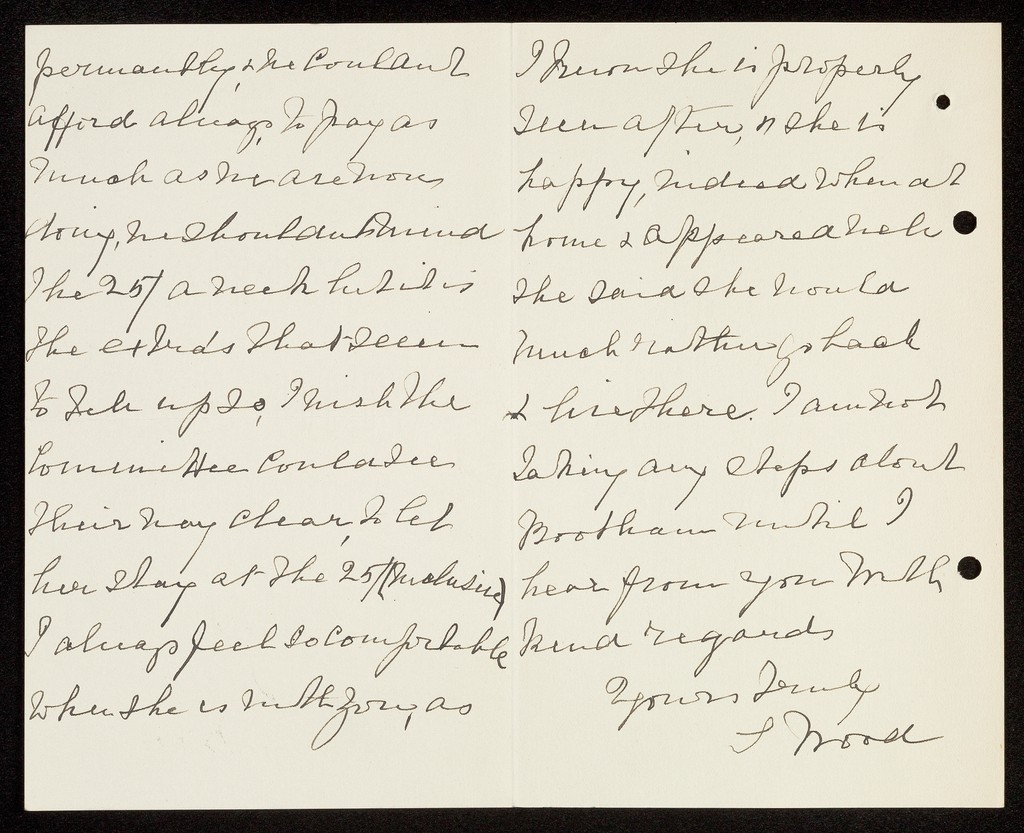 permantly, & we couldn't
afford always, to pay as
much as we are now
doing, we shouldn't mind
the 25/ a week but it is
the extras that seem
to tell up so, I wish the
Committee could see
their way clear, to let
her stay at the 25/ (inclusive)
I always feel so comfortable
when she is with you, as
I know she is properly
seen after, & she is
happy, indeed when at
home & appeared well
she said she would
much rather go back
& live there. I am not
taking any steps about
Bootham until I
hear from you With
kind regards
Yours truly
S Wood